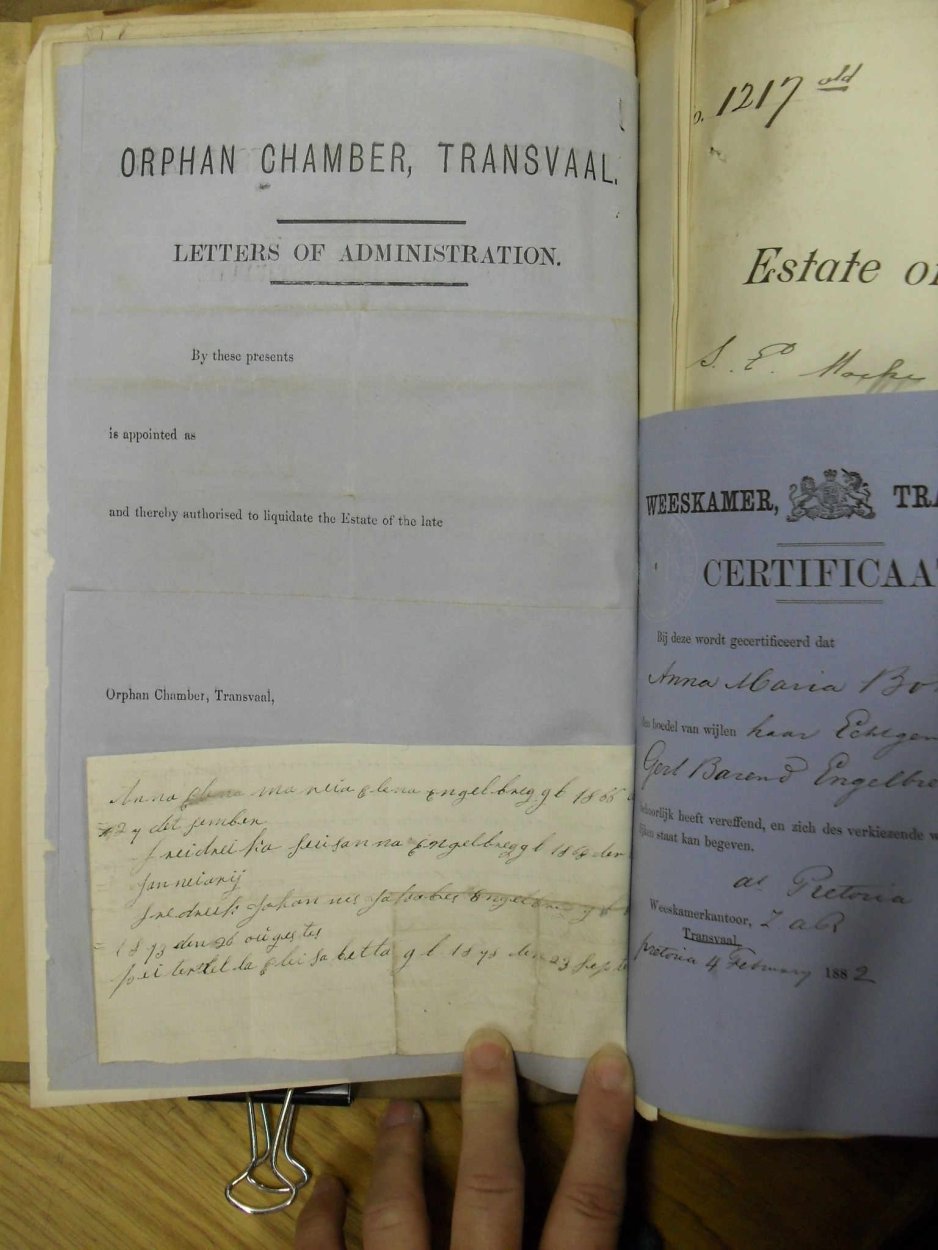 ORPHAN CHAMBER, TRANSVAAL.
LETTERS OF ADMINISTRATION.
By these presents
is appointed as
and thereby authorised to liquidate the Estate of the late
Orphan Chamber, Transvaal,
Anna maria Elena Engelbreggt 1866
y det sember
freidreika seisanna Engelbreggt den
janneiarij
Johannis Engelbre
1873 den 26 ougestes
gl den 23 sep
1217 old
Estate o
S. E.
WEESKAMER, TRA
CERTIFICAA
Bij deze wordt gecertificeerd dat
Anna Maria Bo
den boedel van wijlen haar Echtgen
Gert Barend Engelbre
behoorlijk heeft vereffend, en zich des verkiezende
staat kan begeven.
at Pretoria
Weeskamerkantoor, Z a R
Transvaal,
pretoria 4 February 1882